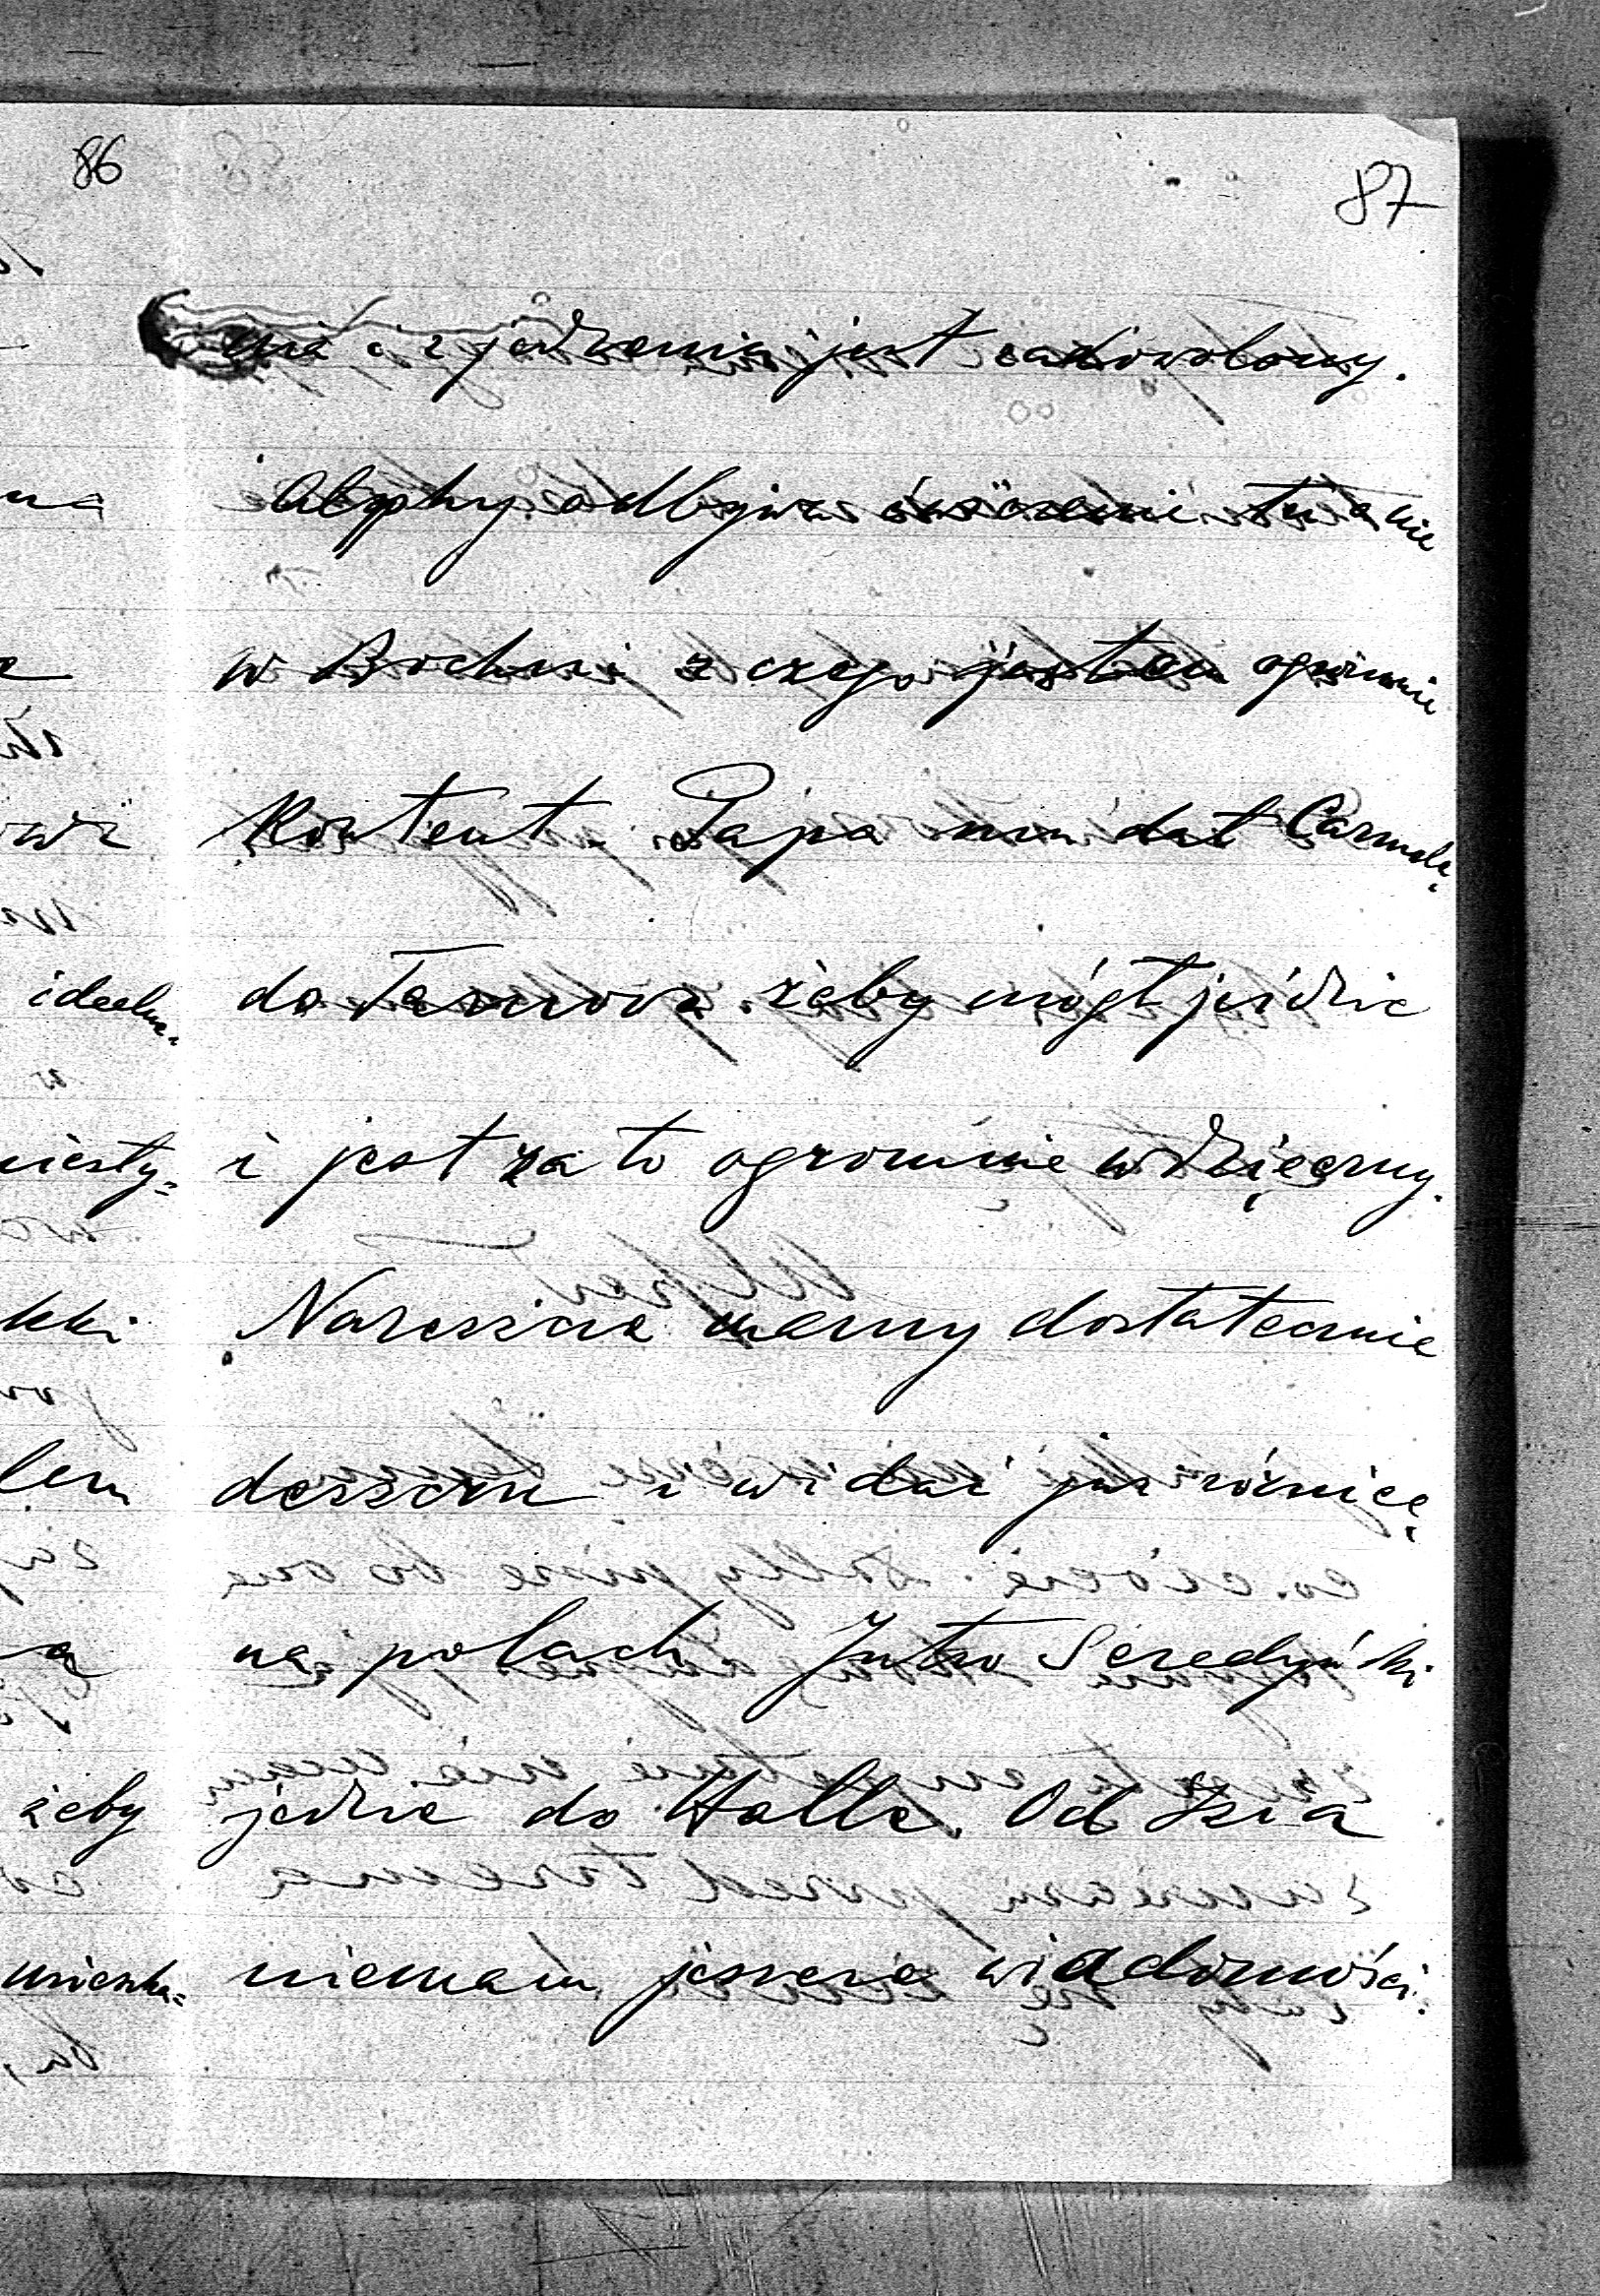 86
87
nia i z jedzenia jest zadowolony.
odbywa ćwiczenia tu a nie
w Bochni z czego jestem ogromnie
kontent. Papa mu dał Carmelę
do Tarnowa żeby mógł jeździć
i jest za to ogromnie wdzięczny.
Nareszcie mamy dostatecznie
deszczu i widać już różnicę
na polach. Jutro Seredyński
jedzie do Halle. Od Izia
niemam jeszcze wiadomości.
idealną
niesty=
kki
lem
żeby
mieszka=